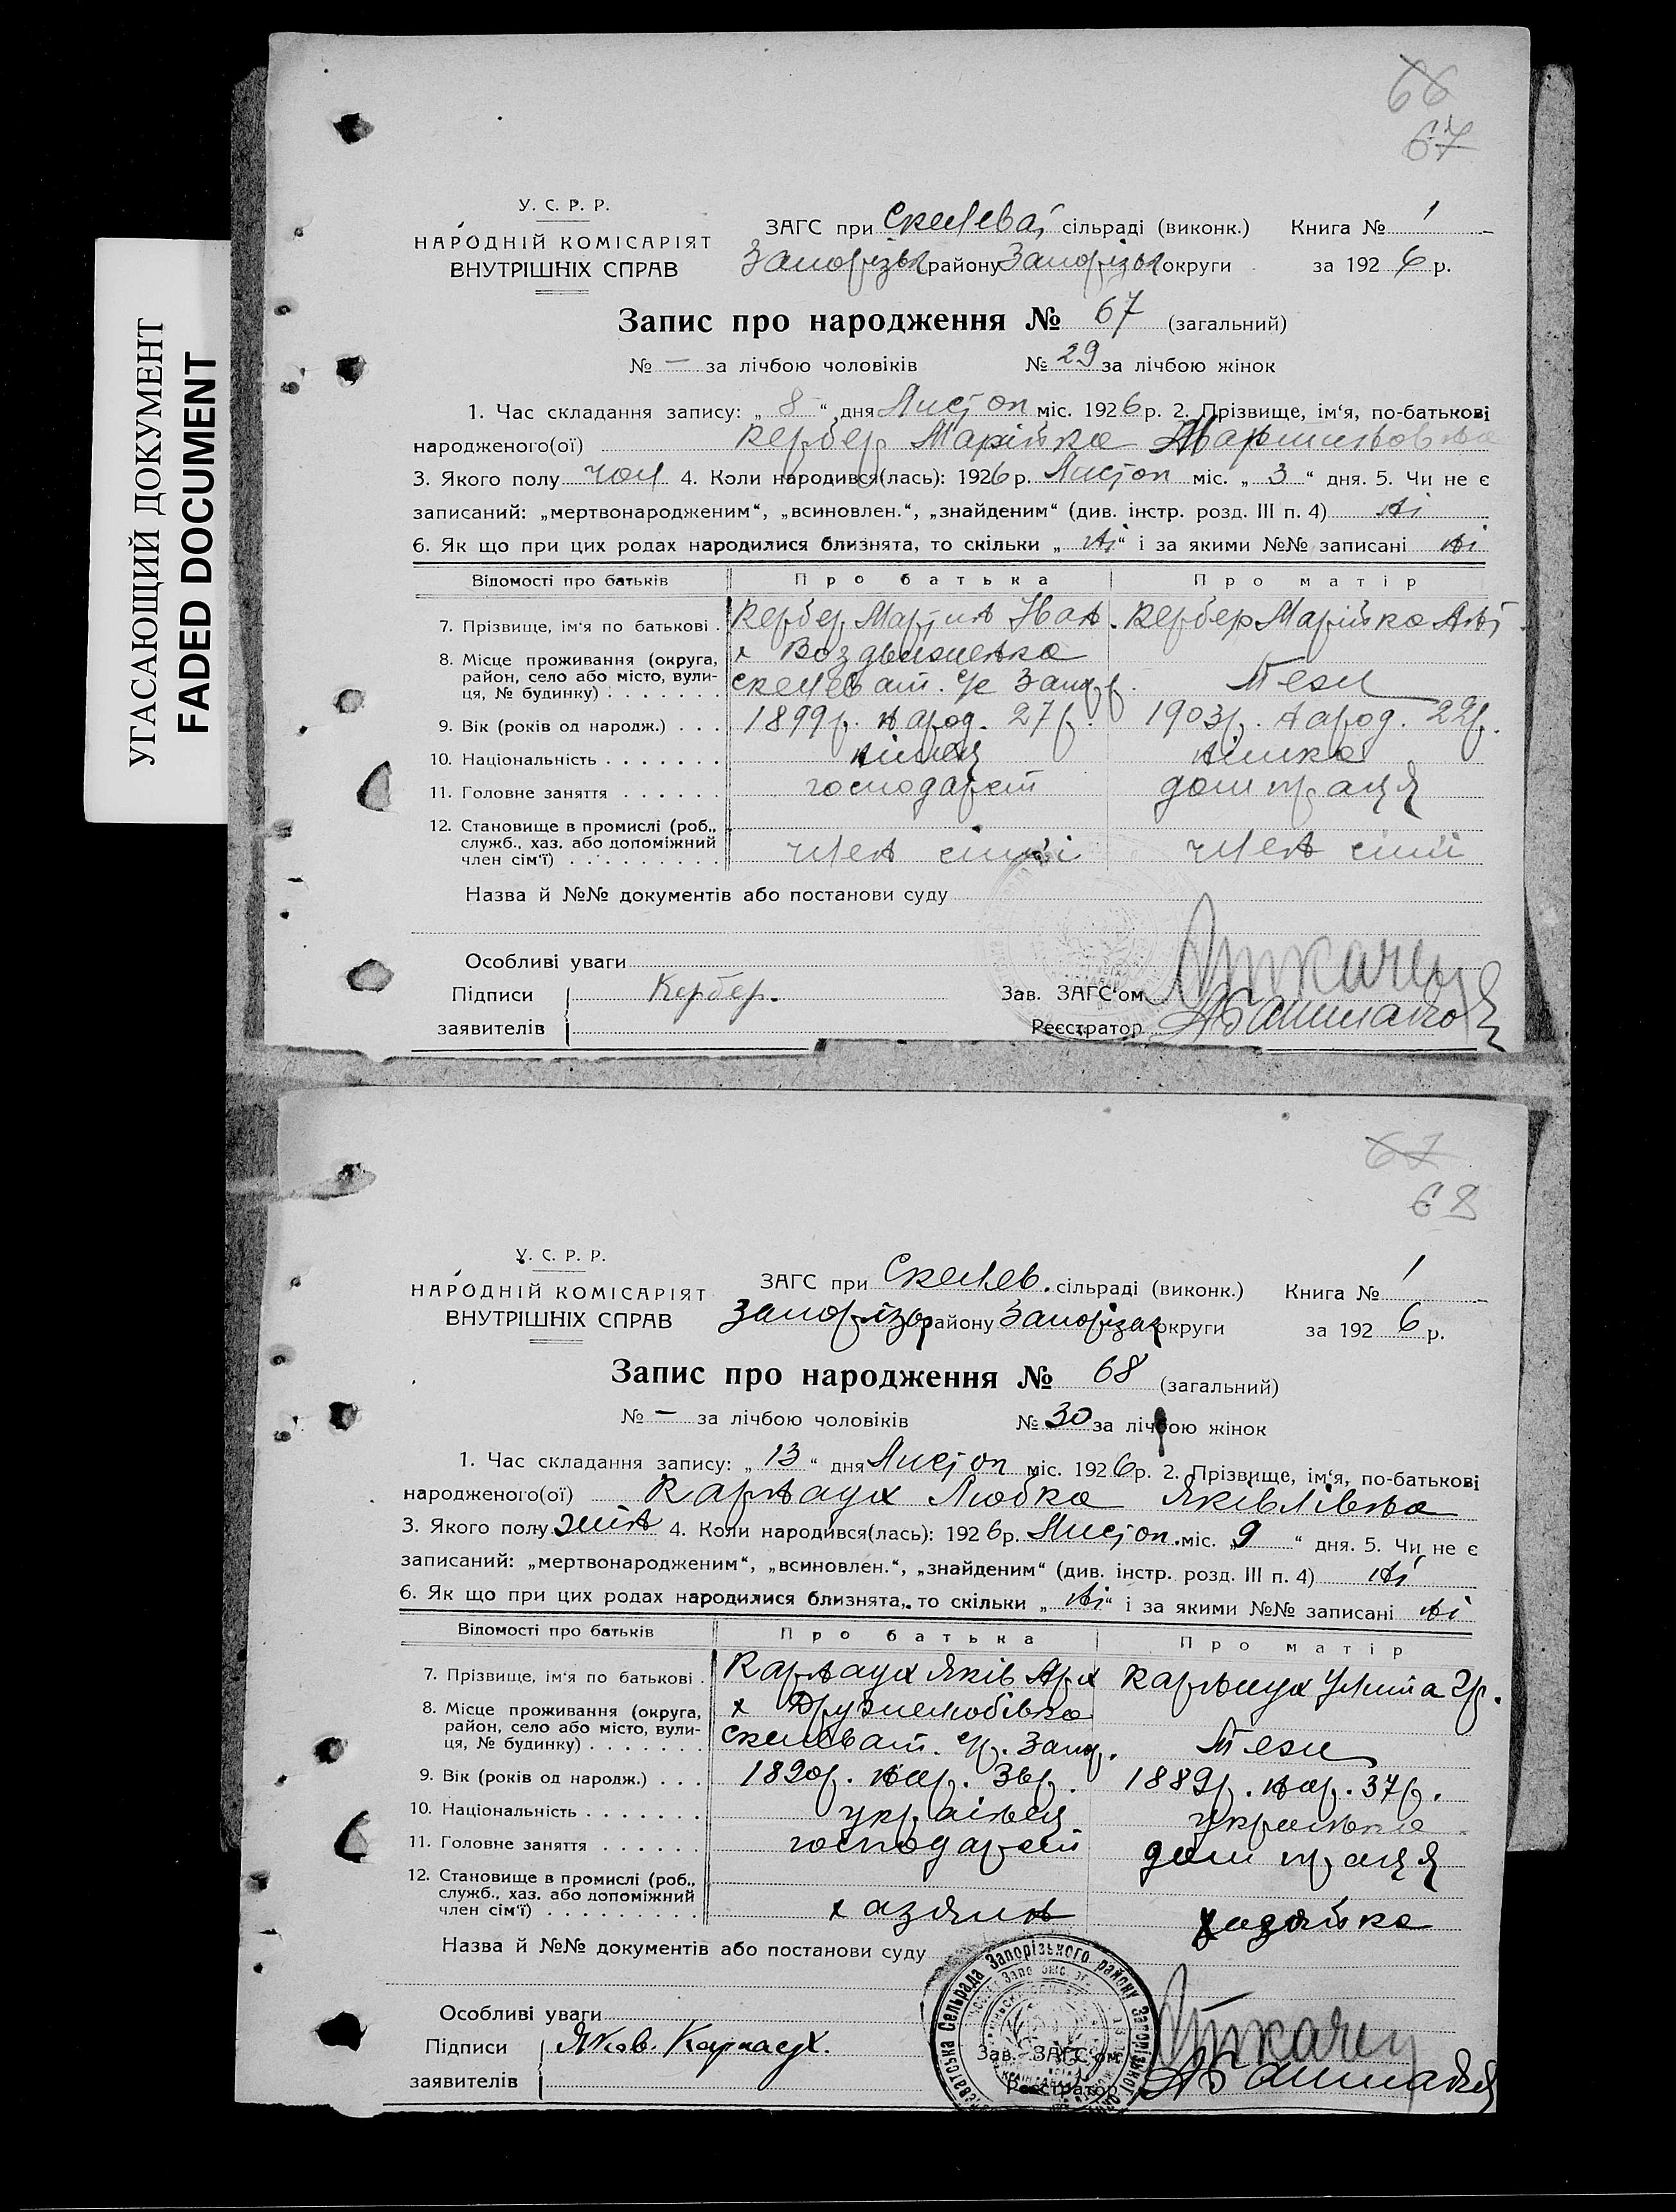 УГАСАЮЩИЙ ДОКУМЕНТ
FADED DOCUMENT
66
67
У. С. Р. Р.
НАРОДНІЙ КОМІСАРІЯТ
ВНУТРІШНІХ СПРАВ
ЗАГС при Скелеват. сільраді (виконк.) Книга № 1
Запорізьк району Запорізьк округи за 1926 р.
Запис про народження № 67 (загальний)
№ — за лічбою чоловіків № 29 за лічбою жінок
1. Час складання запису: „ 8 “ дня Листоп міс. 1926 р. 2. Прізвище, ім‘я, по-батькові
народженого(ої) Кербер Марійка Мартиновна
3. Якого полу чол 4. Коли народився(лась): 1926 р. Листоп міс. „ 3 “ дня. 5. Чи не є
записаний: „мертвонародженим“, „всиновлен.“, „знайденим“ (див. інстр. розд. III п. 4) ні
6. Як що при цих родах народилися близнята, то скільки „ ні “ і за якими №№ записані ні
Відомості про батьків Про батька Про матір
7. Прізвище, ім‘я по батькові . Кербер Мартин Іван. Кербер Марійка Ант.
8. Місце проживання (округа, х Воздвиженка
район, село або місто, вули- Скелеват. с/р Запор. Теж
ця, № будинку) . . . . . .
9. Вік (років од народж.) . . . 1899р. народ. 27р. 1903р. народ. 22р.
10. Національність . . . . . . . німець німка
11. Головне заняття . . . . . . господарст дом праця
12. Становище в промислі (роб.,
служб., хаз. або допоміжний
член сім‘ї) . . . . . . . . . . член сімї член сімї
Назва й №№ документів або постанови суду
Особливі уваги
Підписи Кербер. Зав. ЗАГС‘ом Ткачен
заявителів Реєстратор
67
68
У. С. Р. Р.
НАРОДНІЙ КОМІСАРІЯТ
ВНУТРІШНІХ СПРАВ
ЗАГС при Скелев. сільраді (виконк.) Книга № 1
Запорізьк району Запорізьк округи за 1926 р.
Запис про народження № 68 (загальний)
№ — за лічбою чоловіків № 30 за лічбою жінок
1. Час складання запису: „ 13 “ дня Листоп міс. 1926 р. 2. Прізвище, ім‘я, по-батькові
народженого(ої) Карнаух Любка Яківлівна
3. Якого полу жін 4. Коли народився(лась): 1926 р. Листоп. міс. „ 9 “ дня. 5. Чи не є
записаний: „мертвонародженим“, „всиновлен.“, „знайденим“ (див. інстр. розд. III п. 4) ні
6. Як що при цих родах народилися близнята, то скільки „ ні “ і за якими №№ записані ні
Відомості про батьків Про батька Про матір
7. Прізвище, ім‘я по батькові . Карнаух Яків Арх Карнаух Улита Гр.
8. Місце проживання (округа, х Дружелюбівка
район, село або місто, вули- Скелеват. с/р. Запор. Теж
ця, № будинку) . . . . . . .
9. Вік (років од народж.) . . . 1890р. нар. 36р. 1889р. нар. 37р.
10. Національність . . . . . . . українець українка
11. Головне заняття . . . . . . господарст дом праця
12. Становище в промислі (роб.,
служб., хаз. або допоміжний
член сім‘ї) . . . . . . . . . хазяин хазяйка
Назва й №№ документів або постанови суду
Сельрада Запорізького району Запорізької
Особливі уваги
Підписи Яков. Карнаух. Зав. ЗАГС‘ом Ткачен
заявителів Реєстратор